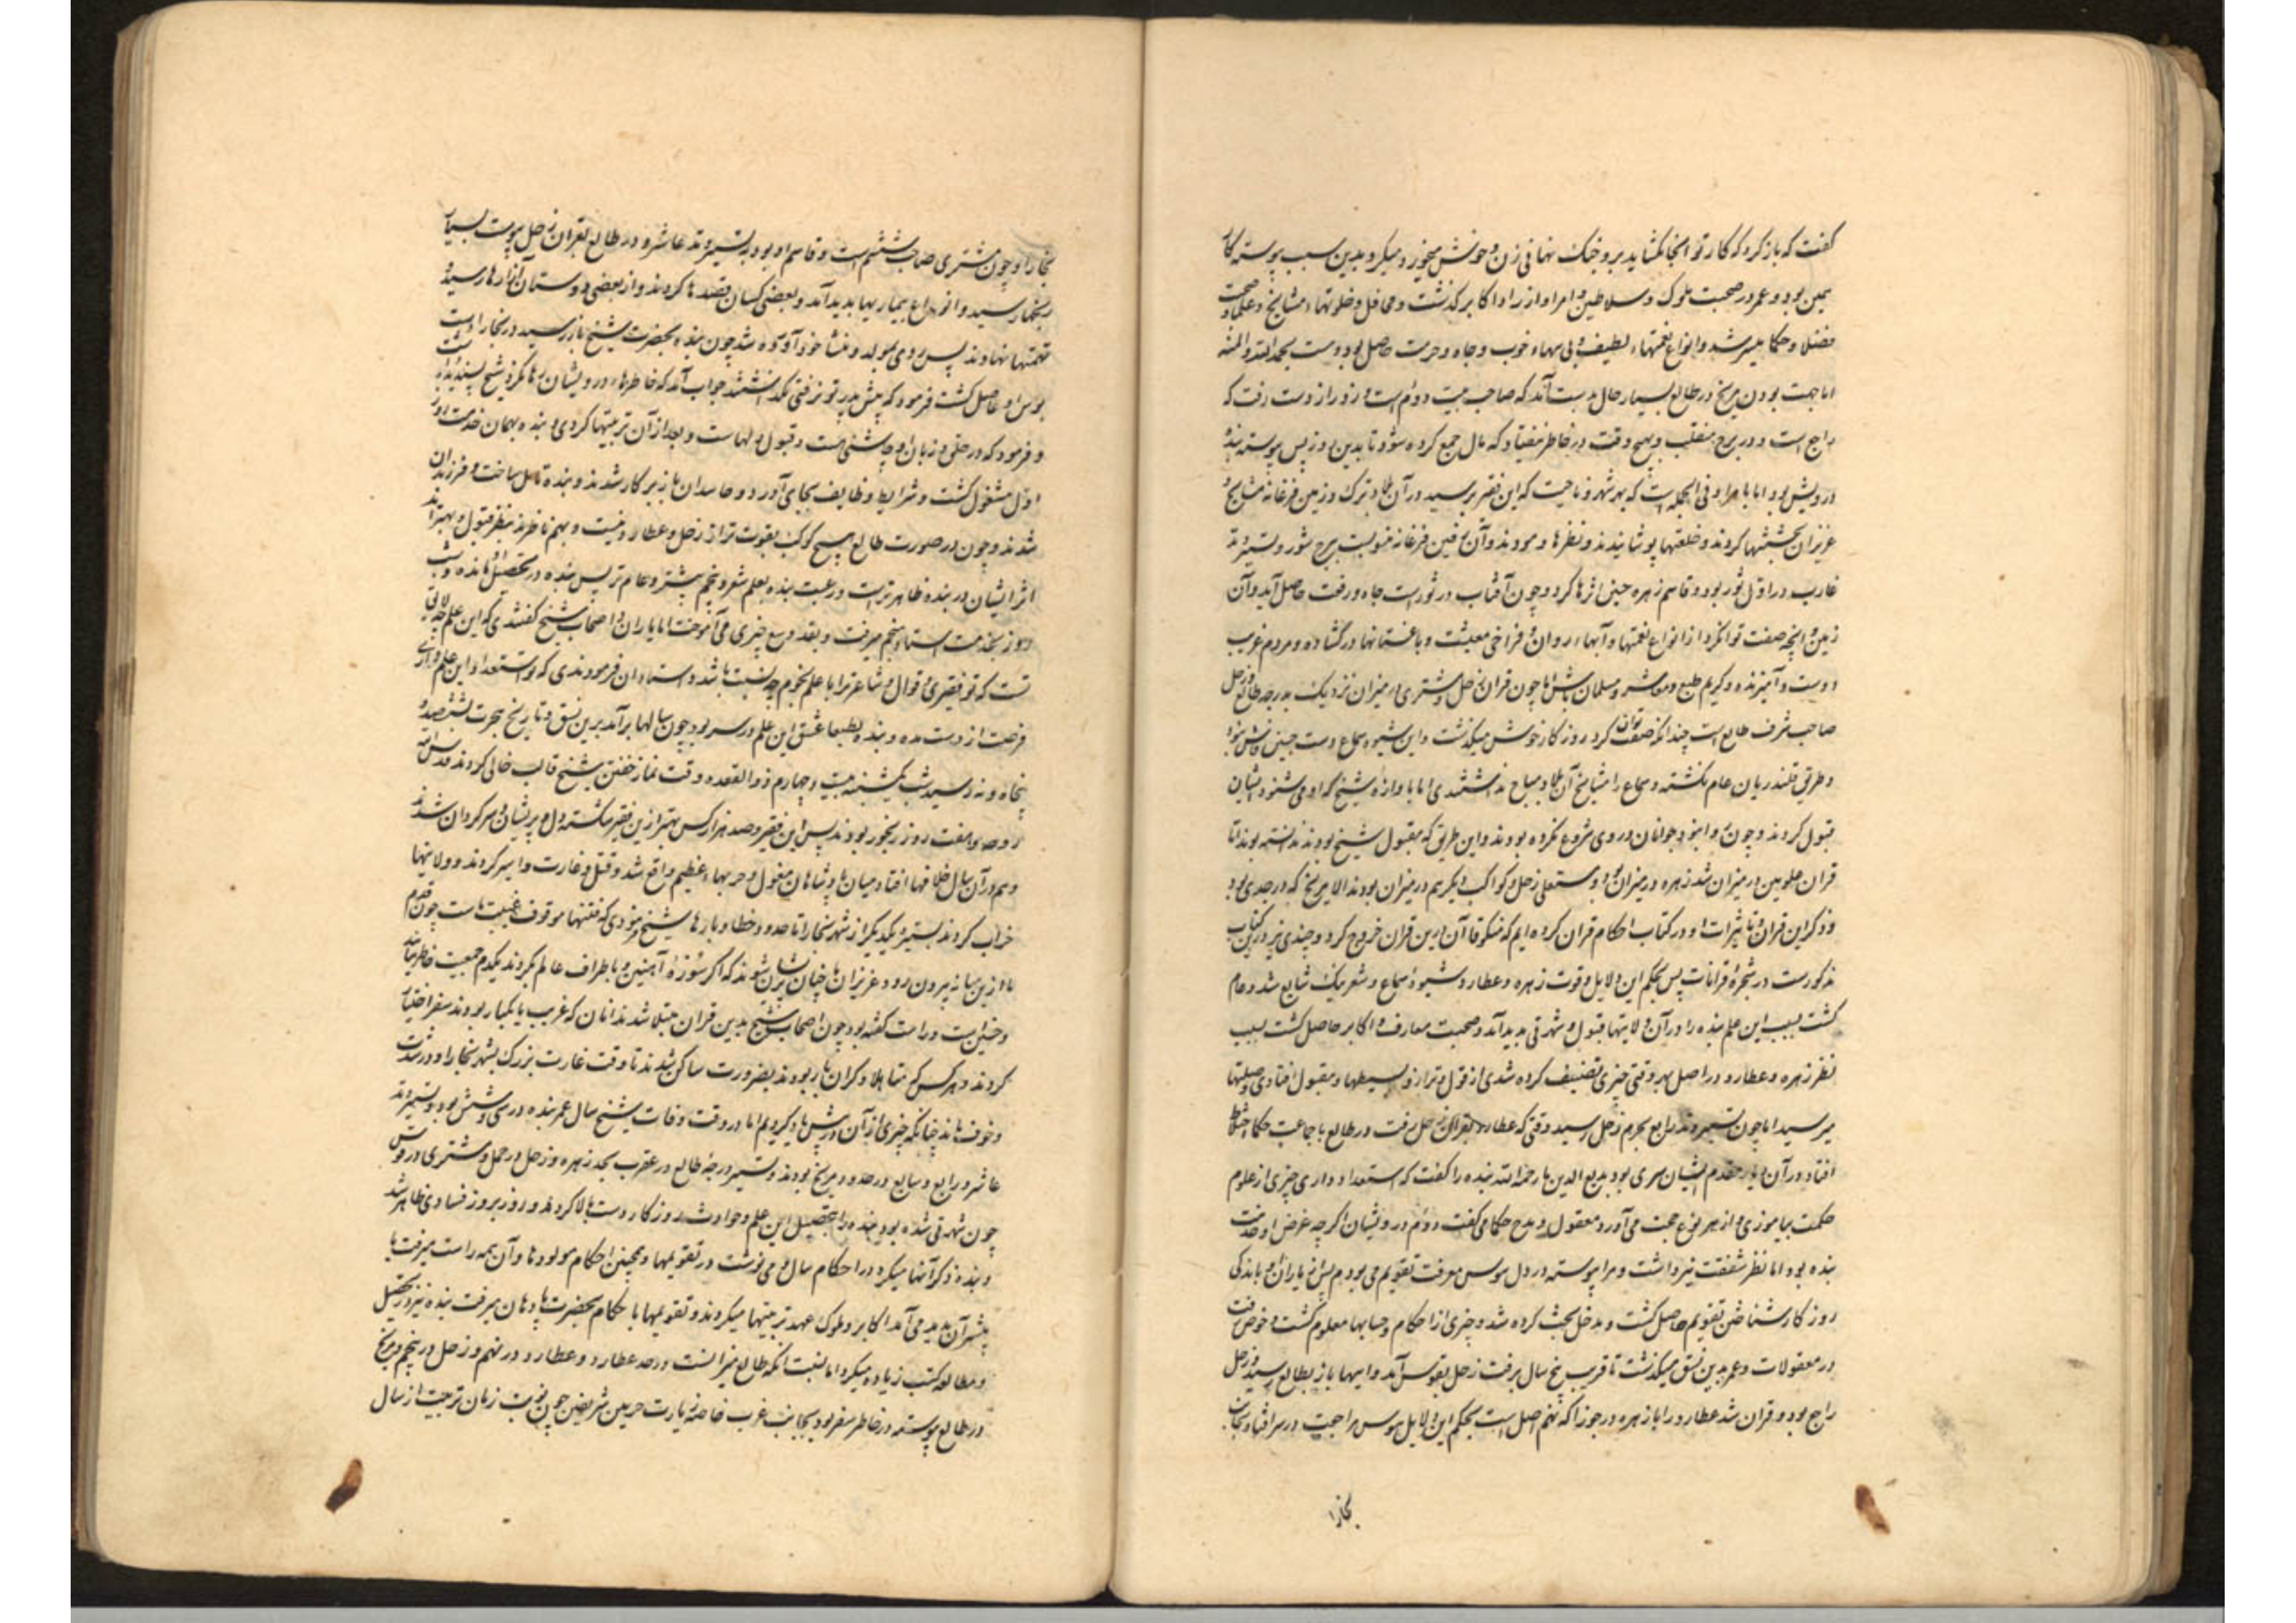 گفت که بازگرد که کار تو اینجا نگشاید برو خنک نهانی زن و خوش میخور و میگرد بدین سبب پیوسته کار
همین بود و عمر در صحبت ملوک و سلاطین و امرا و ازرا و اکابر گذشت و محافل و خلوتهاء مشایخ و علما و صحبت
فضلا و حکما میسر شد و انواع نعمتهاء لطیف و بی بهاء خوب و جاه و حرمت حاصل بودست بحمد الله و المنه
اما جهت بودن مریخ در طالع بسیار حال بدست آمد که صاحب بیت دوم است و زود از دست رفت که
راجع است و در برج منقلب و هیچ وقت در خاطر نیفتاد که مال جمع کرده شود تا بدین روز پس پیوسته بنده
درویش بود اما با مراد فی الجمله است که بهر شهر و ناحیت که این فقیر برسید در آن بلاد ترک و زمین فرغانه مشایخ و
عزیزان بخششها کردند و خلعتها پوشانیدند و نظرها فرمودند و آن زمین فرغانه منسوبست ببرج ثور و تسییر وتد
غارب در اول ثور بود و قاسم زهره چنین اثرها کرد و چون آفتاب در ثورست جاه و رفعت حاصل آید و آن
زمین را نچه صفت توان کرد از انواع نعمتها و آبهاء روان و فراخی معیشت و باغستانها در گشاده و مردم غریب
دوست و آمیزنده و کریم طبع و معاشر و مسلمان باش اما چون قران زحل و مشتری در میزان نزدیک بدرجه طالع و زحل
صاحب شرف طالع است چندانکه صفت توان کرد روزگار خوش میگذشت و این شیوه سماع دست چنین فاش نبود
و طریق قلندریان عام نگشته و سماع را مشایخ آن بلاد مباح نداشتندی اما با وازه شیخ که او می شنود ایشان
قبول کردند و چون و انبو جوانان در وی شروع نکرده بودند و این طریق که مقبول شیخ بودند ندانسته بودند تا
قران علویین در میزان شد زهره در میزان بود و مستعلی زحل و کواکب دیگر هم در میزان بودند الا مریخ که در جدی بود
و ذکر این قران و تاثیرات او در کتاب احکام قران کرده ایم که منکوقاآن درین قران خروج کرد و چندی نیز درین کتاب
مذکورست در شجره قرانات پس بحکم این دلایل و قوت زهره و عطارد شیوه سماع و شعر نیک شایع شد و عام
گشت بسبب این علم بنده را در آن ولایتها قبول و شهرتی پدید آمد و صحبت معارف و اکابر حاصل گشت بسبب
نظر زهره و عطارد در اصل بهر وقتی چیزی تصنیف کرده شدی از قول و ترانه و بسیطها و مقبول افتادی و صلتها
میرسید اما چون تسییر وتد رابع بجرم زحل رسید وقتی که عطارد بقران زحل رفت در طالع با جماعت حکما اختلاط
افتاد در آن دیار مقدم ایشان سری بود بدیع الدین نام رحمه الله بنده را گفت که استعداد داری چیزی از علوم
حکمت بیاموزی و از هر نوع حجت می آورد معقول و مدح حکما می گفت و ذم درویشان اگرچه غرض او خدمت
بنده بود اما نظر شفقت نیز داشت و مرا پیوسته در دل هوس معرفت تقویم می بودم پس از یاران و باندکی
روزگار شناختن تقویم حاصل گشت و مدخل بحث کرده شد و چیزی از احکام و حسابها معلوم گشت و خوض رفت
در معقولات و عمر بدین نسق میگذشت تا قریب پنج سال برفت زحل بقوس آمد و اینها باز بطالع رسید و زحل
راجع بود و قران شد عطارد را با زهره در جوزا که نهم اصل است بحکم این دلایل هوس مراجعت در سر افتاد بجانب
بخارا
بخارا و چون مشتری صاحب ششم است و قاسم او بود به تسییر وتد عاشر و در طالع بقران زحل پیوست بسیار
رنجها رسید و انواع بیماریها پدید آمد و بعضی کسان قصدها کردند و از بعضی دوستان آزارها رسید و
تهمتها نهادند پس روی بمولد و منشا خود آورده شد چون بنده بحضرت شیخ باز رسید در بخارا دست
بوس او حاصل گشت فرمود که پیش پدر تو نرفتی نگذاشتند جواب آمد که خاطرهاء درویشان رها نکرد شیخ پسندیده
و فرمود که در حلق و زبان او چاشنی هست و قبول دلهاست و بعد از آن تربیتها کردی و بنده بهمان خدمت اول
اول مشغول گشت و شرایط وظایف بجای آورد و حاسدان باز بر کار شدند و بنده تاهل ساخت و فرزندان
شدند و چون در صورت طالع هیچ کوکب بقوت تر از زحل و عطارد نیست و بهم ناظرند بنظر قبول و بهتر اند
اثر ایشان در بنده ظاهرترست و رغبت بنده بعلم شعر و نجوم بیشتر و عام تر پس بنده در تحصیل مانده و شب
و روز بخدمت استاد منجم میرفت و بقدر وسع چیزی می آموخت اما یاران و اصحاب شیخ گفتندی که این علم چه لایق
تست که تو فقیری و قوال و شاعر ترا با علم نجوم چه نسبت باشد و استادان فرمودندی که تو استعداد این علم داری
فرصت از دست مده و بنده بطبعا عشق این علم در سر بود چون سالها برآمد برین نسق و تاریخ هجرت بششصد و
پنجاه و نه رسید شب یکشنبه بیست و چهارم ذو القعده وقت نماز خفتن شیخ قالب خالی کردند قدس الله
روحه و هفت روز رنجور بودند پس این فقیر و صد هزار کس بهتر ازین فقیر شکسته دل و پریشان و سرگردان شدند
و هم در آن سال خلافها افتاد میان پادشاهان مغول و حربهاء عظیم واقع شد و قتل و غارت و اسیر کردند و ولایتها
خراب کردند بستیزه یکدیگر از شهر بخارا تا حدود خطا و بارها شیخ فرمودی که فتنها موقوف غیبت ماست چون قدم
ما ازین میانه بیرون رود عزیزان ما چنان پریشان شوند که اگر سوزه آهنین و باطراف عالم بگردند یکدم جمعیت خاطر نیابند
و چنین است و راست گفته بود چون اصحاب شیخ بدین قران مبتلا شدند آنان که غریب یا یکبار بودند سفر اختیار
کردند و هر کس که متاهل و گران بار بودند بضرورت ساکن شدند تا وقت غارت بزرگ بشهر بخارا و در شدت
و خوف ماند چنانکه چیزی از آن در پیش یاد کردیم اما در وقت وفات شیخ سال عمر بنده در سی و شش بود و تسییر وتد
عاشر و رابع و سابع در حدود مریخ بودند و تسییر درجه طالع در عقرب بحد زهره و زحل در حمل و مشتری در قوس
چون شهرتی شده بود بنده را بتحصیل این علم و حوادث روزگار دست بالا کردند و روز بروز فسادی ظاهر شد
و بنده ذکر آنها میکرد در احکام سال و می نوشت در تقویمها و همچنین احکام مولودها و آن همه راست میرفت با
بیشتر آن پدید می آمد اکابر و ملوک عهد تربیتها میکردند و تقویمها با حکام بحضرت پادشاهان میرفت بنده نیز در تحصیل
و مطالعه کتب زیاده میکرد اما بسبب آنکه طالع میزانست و در حد عطارد و عطارد در نهم و زحل در پنجم و مریخ
در طالع پیوسته در خاطر سفر بود بجانب غرب خاصه زیارت حرمین شریفین چون نوبت زمان تربیت از سال